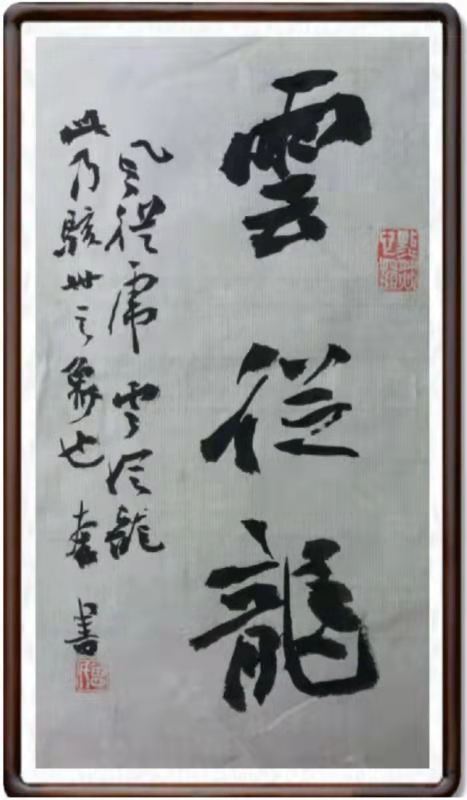 雲從龍
风從虎雲從龍
此乃駭世之象也 書